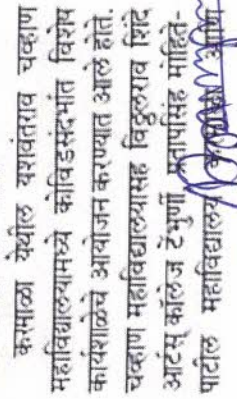 करमाळा येथील यशवंतराव चव्हाण
महाविद्यालयामध्ये कोविडसंदर्भात विशेष
कार्यशाळेचे आयोजन करण्यात आले होते.
चव्हाण महाविद्यालयासह विठ्ठलराव शिंदे
आर्टस् कॉलेज टेंभुर्णी, प्रतापसिंह मोहिते-
पाटील महाविद्यालय आणि